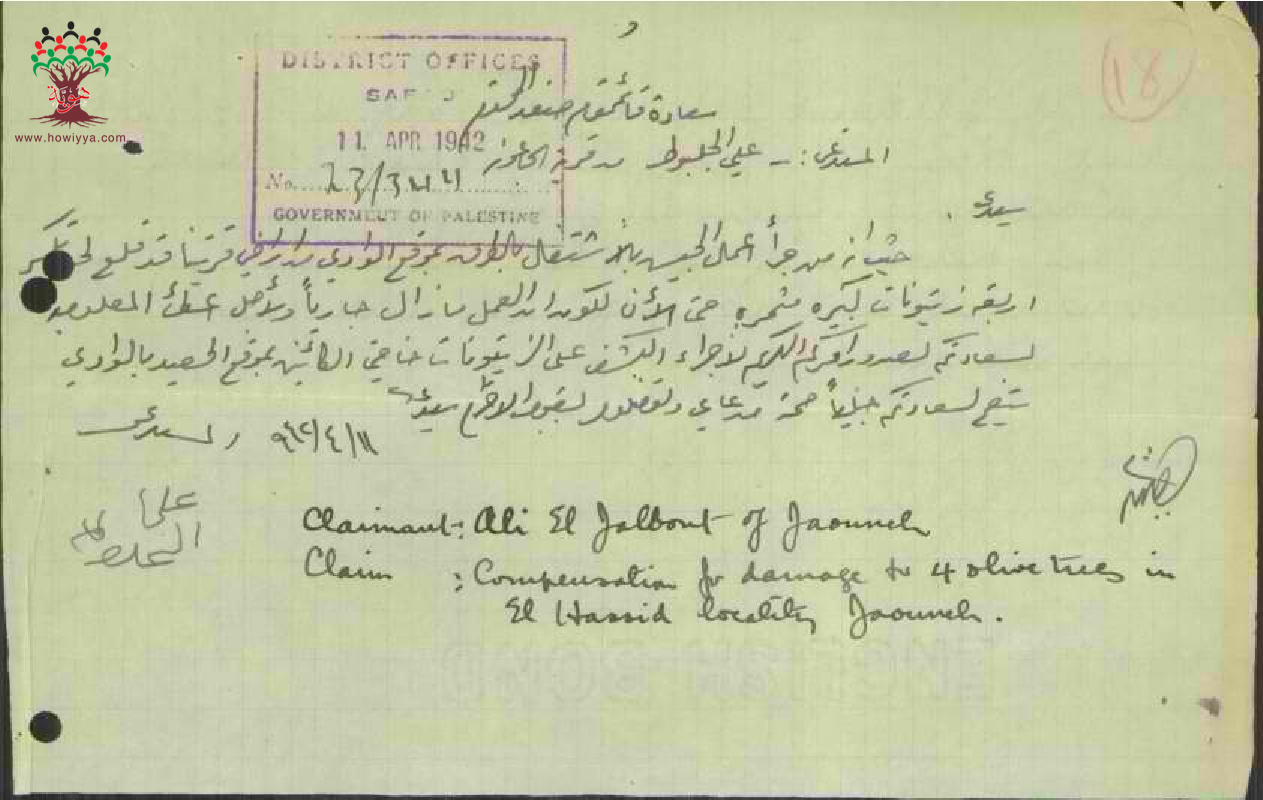 18
DISTRICT OFFICES
SAFAD
11 APR 1942
No. 23/344
GOVERNMENT OF PALESTINE
هوية
www.howiyya.com
سعادة قائمقام صفد المحترم
المستدعي :- علي الجلبوط من قرية الجاعونة
سيدي
حيث انه من جرأ اعمال الجيش بالأشتغال بالطرق بموقع الوادي من اراضي قريتنا قد قلع لي
اربعة زيتونات كبيره مثمره حتى الأن لكون ان العمل ما زال جارياً ولأجل
لسعادتكم لصدور امركم الكريم لاجراء الكشف على الزيتونات خاصتي الكائنين بموقع الحصيد بالوادي
يتضح لسعادتكم جلياً صحة مدعاي وتفضلوا بقبول الاحترام سيدي
١١/٤/٩٤٢ المستدعي
علي
الجلبوط
Claimant: Ali El Jalbout of Jaouneh
Claim : Compensation for damage to 4 olive trees in
El Hassid locality Jaouneh.